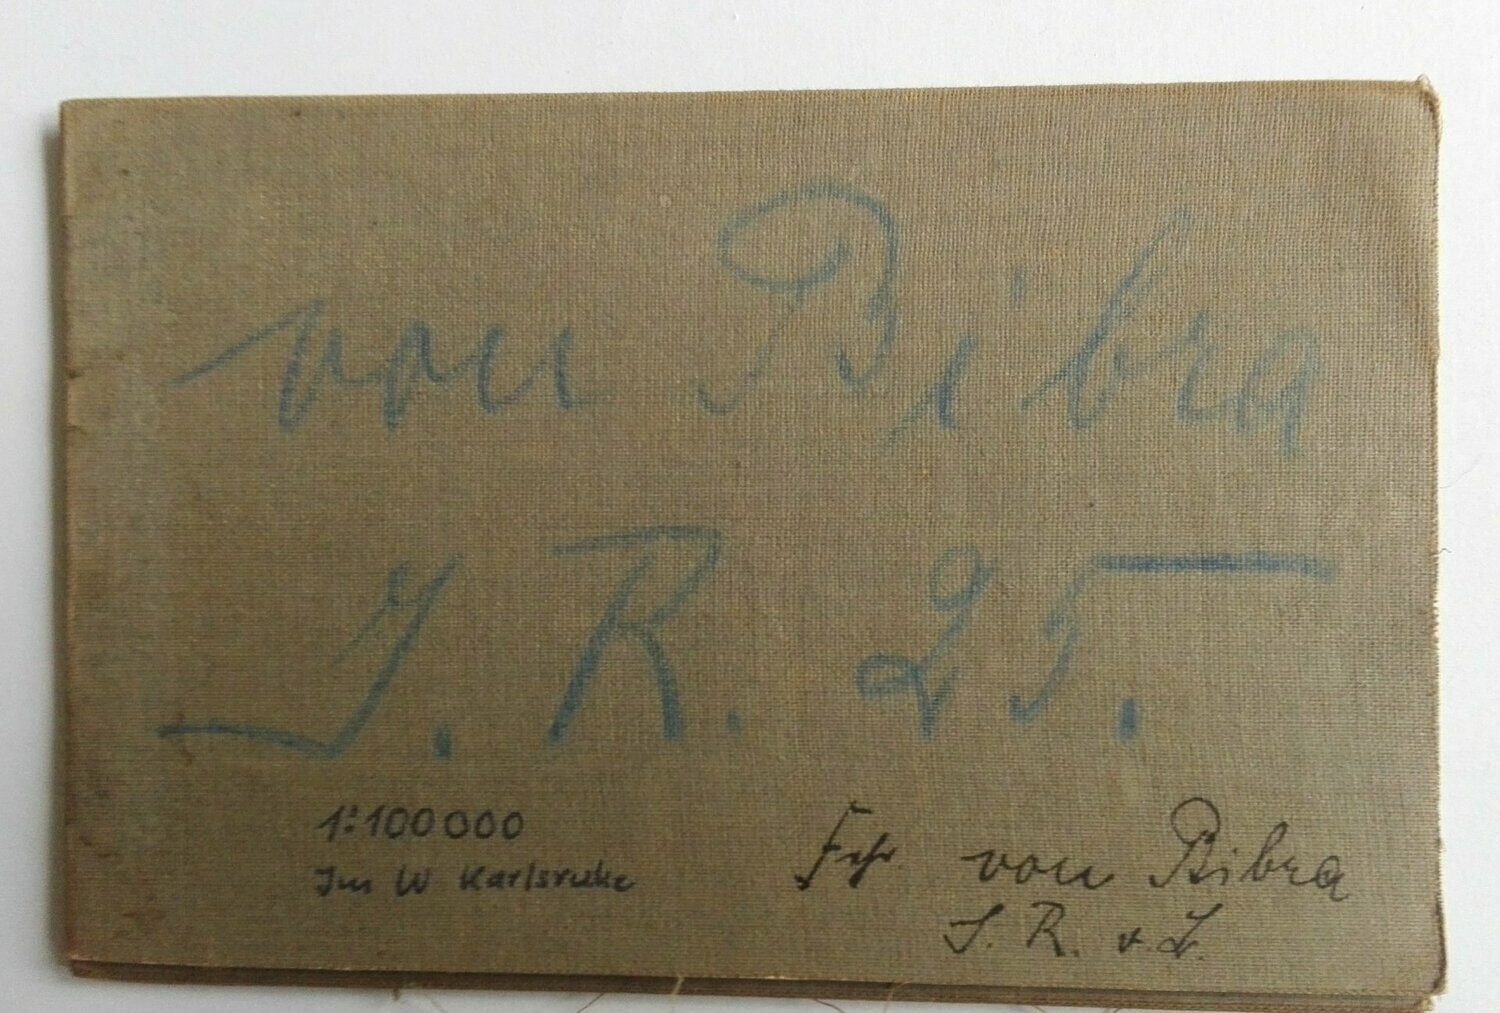 von Bibra
J. R. 25.
1:100000
Im W Karlsruhe
Frhr von Bibra
J. R. v. L.